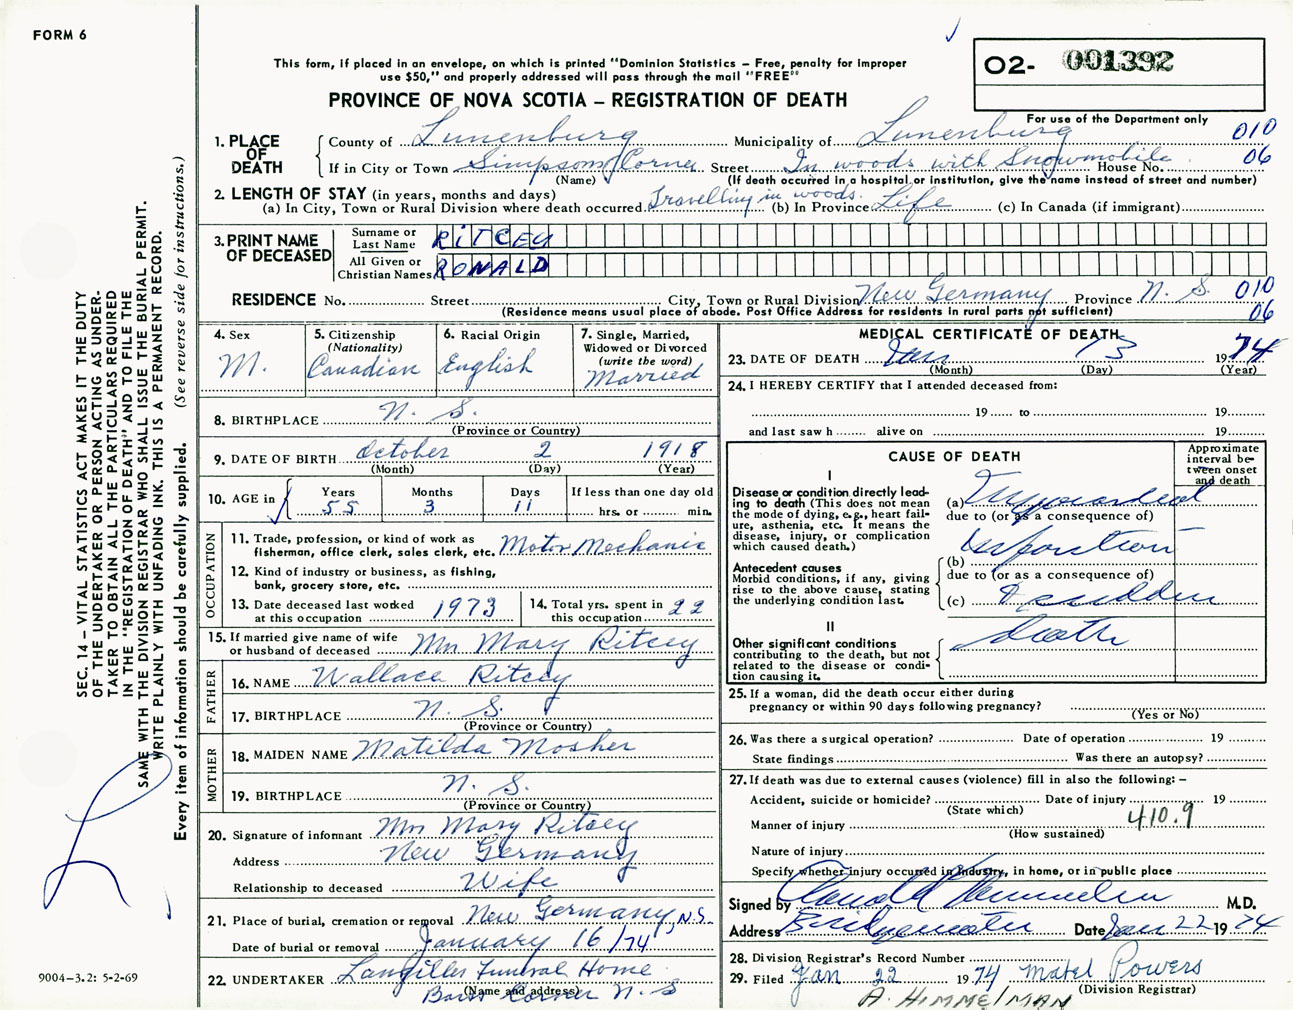 FORM 6
This form, if placed in an envelope, on which is printed "Dominion Statistics – Free, penalty for improper
use $50," and properly addressed will pass through the mail "FREE"
PROVINCE OF NOVA SCOTIA – REGISTRATION OF DEATH
O2- 001392
For use of the Department only
010
06
1. PLACE OF DEATH
County of Lunenburg Municipality of Lunenburg
If in City or Town Simpsons Corner Street In woods with Snowmobile House No.
(Name) (If death occurred in a hospital or institution, give the name instead of street and number)
2. LENGTH OF STAY (in years, months and days)
(a) In City, Town or Rural Division where death occurred Travelling in woods. (b) In Province Life (c) In Canada (if immigrant)
3. PRINT NAME OF DECEASED
Surname or Last Name RITCEY
All Given or Christian Names RONALD
RESIDENCE No. Street City, Town or Rural Division New Germany Province N. S. 010
(Residence means usual place of abode. Post Office Address for residents in rural parts not sufficient) 06
4. Sex M.
5. Citizenship (Nationality) Canadian
6. Racial Origin English
7. Single, Married, Widowed or Divorced (write the word) Married
8. BIRTHPLACE N. S.
(Province or Country)
9. DATE OF BIRTH October 2 1918
(Month) (Day) (Year)
10. AGE in Years 55 Months 3 Days 11 If less than one day old
hrs. or min.
OCCUPATION
11. Trade, profession, or kind of work as
fisherman, office clerk, sales clerk, etc. Motor Mechanic
12. Kind of industry or business, as fishing,
bank, grocery store, etc.
13. Date deceased last worked at this occupation 1973
14. Total yrs. spent in this occupation 22
15. If married give name of wife
or husband of deceased Mrs Mary Ritcey
FATHER
16. NAME Wallace Ritcey
17. BIRTHPLACE N. S.
(Province or Country)
MOTHER
18. MAIDEN NAME Matilda Mosher
19. BIRTHPLACE N. S.
(Province or Country)
20. Signature of informant Mrs Mary Ritcey
Address New Germany
Relationship to deceased Wife
21. Place of burial, cremation or removal New Germany, N.S.
Date of burial or removal January 16/74
22. UNDERTAKER Langilles Funeral Home
(Name and address) Barss Corner N. S
MEDICAL CERTIFICATE OF DEATH
23. DATE OF DEATH Jan 13 1974
(Month) (Day) (Year)
24. I HEREBY CERTIFY that I attended deceased from:
19 to 19
and last saw h alive on 19
CAUSE OF DEATH
Approximate interval between onset and death
I
Disease or condition directly lead-
ing to death (This does not mean
the mode of dying, e.g., heart fail-
ure, asthenia, etc. It means the
disease, injury, or complication
which caused death.)
(a) Myocardial
due to (or as a consequence of)
infarction
Antecedent causes
Morbid conditions, if any, giving
rise to the above cause, stating
the underlying condition last.
(b)
due to (or as a consequence of)
(c) sudden
II
Other significant conditions
contributing to the death, but not
related to the disease or condi-
tion causing it.
death
25. If a woman, did the death occur either during
pregnancy or within 90 days following pregnancy?
(Yes or No)
26. Was there a surgical operation? Date of operation 19
State findings Was there an autopsy?
27. If death was due to external causes (violence) fill in also the following: –
Accident, suicide or homicide? Date of injury 19
(State which)
Manner of injury 410.9
(How sustained)
Nature of injury
Specify whether injury occurred in industry, in home, or in public place
Signed by M.D.
Address Bridgewater Date Jan 22 1974
28. Division Registrar's Record Number
29. Filed Jan 22 1974 Mabel Powers
(Division Registrar)
A. HIMMELMAN
SEC. 14 – VITAL STATISTICS ACT MAKES IT THE DUTY
OF THE UNDERTAKER OR PERSON ACTING AS UNDER-
TAKER TO OBTAIN ALL THE PARTICULARS REQUIRED
IN THE "REGISTRATION OF DEATH" AND TO FILE THE
SAME WITH THE DIVISION REGISTRAR WHO SHALL ISSUE THE BURIAL PERMIT.
WRITE PLAINLY WITH UNFADING INK. THIS IS A PERMANENT RECORD.
Every item of information should be carefully supplied. (See reverse side for instructions.)
9004-3.2: 5-2-69